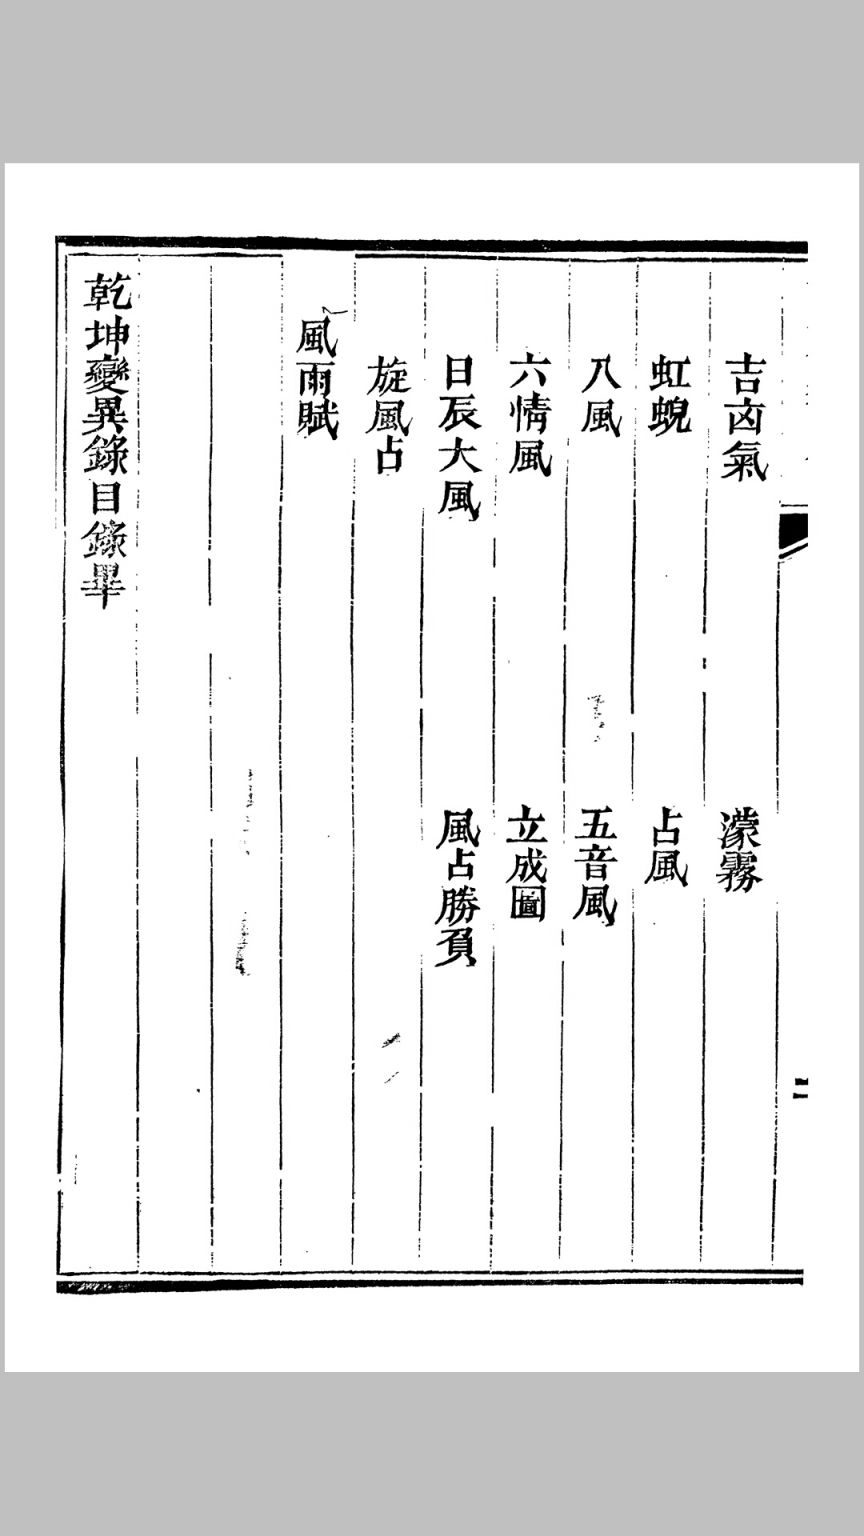 吉凶氣　濛霧
虹蜺　占風
八風　五音風
六情風　立成圖
日辰大風　風占勝負
旋風占
風雨賦
乾坤變異錄目錄畢